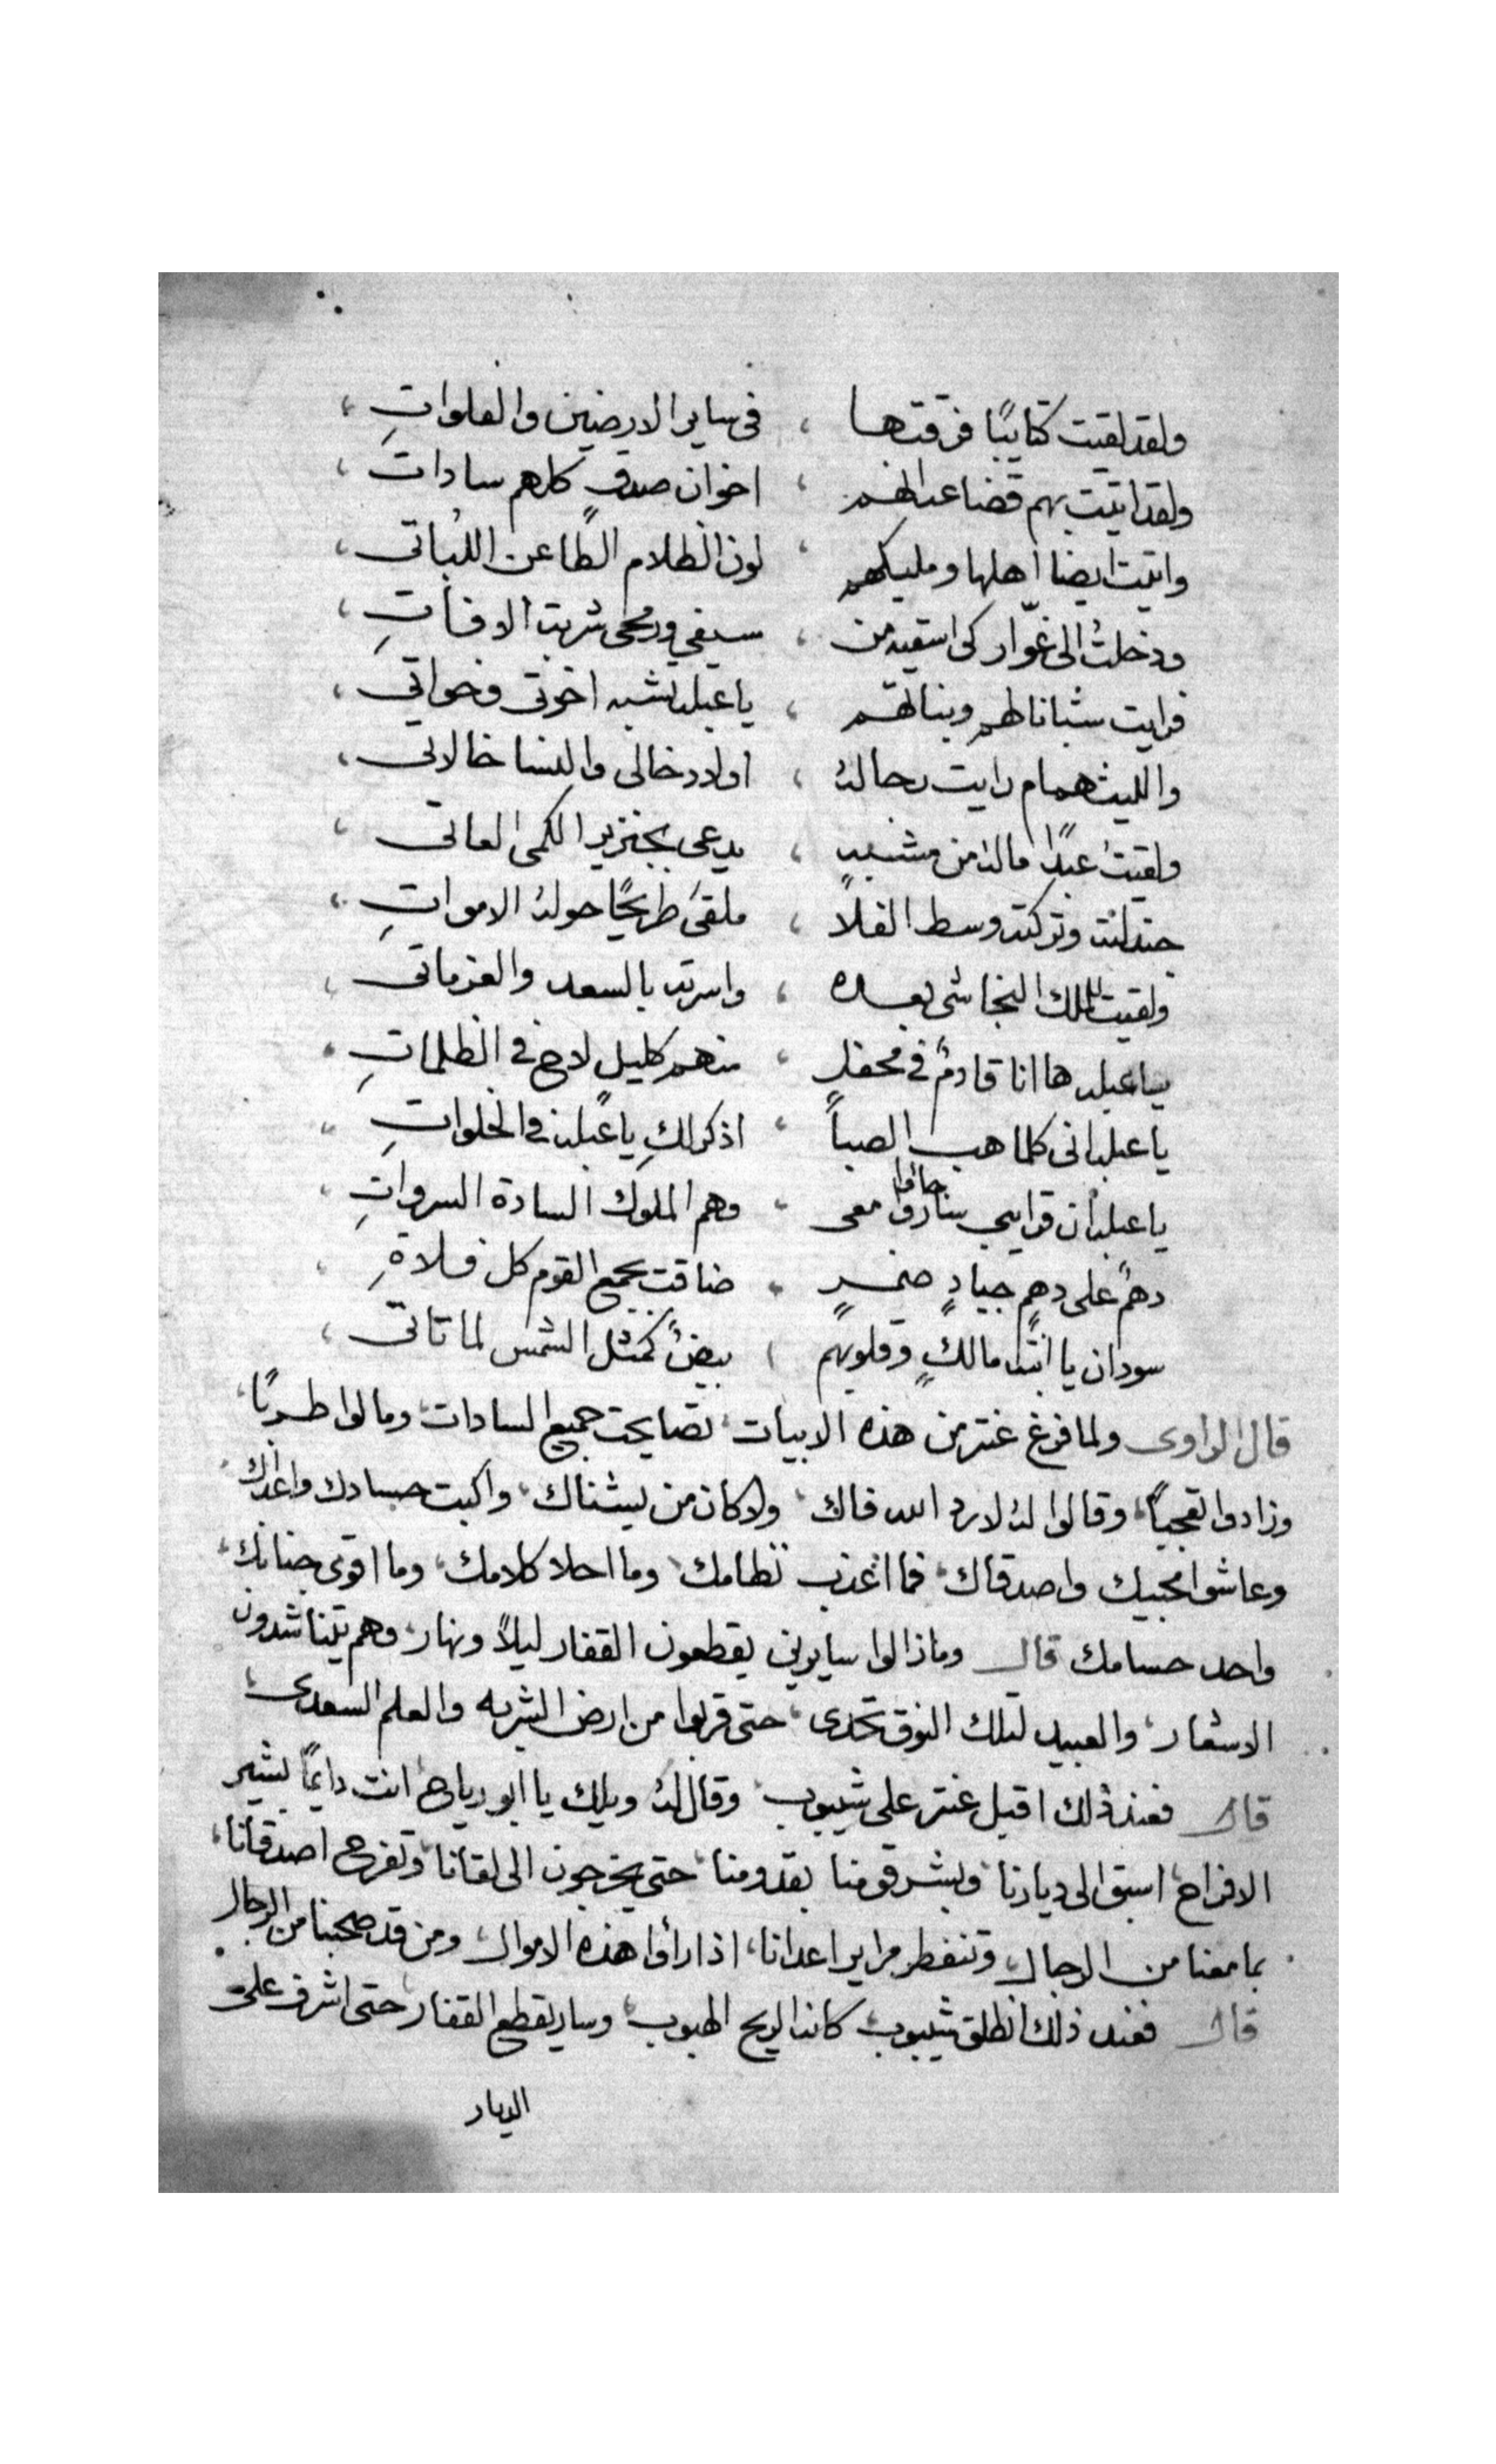 ولقد لقيت كتايبًا فرقتها ، فى ساير الارضين والفلواتِ ،
ولقد اتيت بهم قضاعه انهم ، اخوان صدقٍ كلهم سادات ،
واتيت ايضا اهلها ومليكهم ، لون الظلام الطاعن اللباتى ،
ودخلت الى غوّار كى اسقيه من ، سيفي ورمحى شربة الافاتِ ،
فرايت شبانا لهم وبناتهم ، يا عبله تشبه اخوتى وخواتي ،
والليث همام رايت رجاله ، اولاد خالى والنسا خالاتى ،
ولقيت عبدًا ماله من مشبهٍ ، يدعى بخنزير الكمى العاتى ،
جندلته وتركته وسط الفلا ، ملقىً طريحًا حوله الامواتِ ،
ولقيت للملك النجاشى بعده ، واسرته بالسعد والعزماتى ،
يا عبله ها انا قادمٌ في محفلٍ ، منهم كليلٍ لاح في الظلماتِ ،
يا عبله انى كلما هب الصبا ، اذكركِ يا عبله في الخلواتِ ،
يا عبله ان قرايبي ساروا جاؤا معى ، وهم الملوك السادة السرواتِ ،
دهمٌ على دهمٍ جيادٍ ضمرٍ ، ضاقت بجمع القوم كل فلاةِ ،
سودان يا ابنة مالكٍ وقلوبهم ، بيضٌ كمثل الشمس لما تاتى ،
قال الراوى ولما فرغ عنتر من هذه الابيات ، تصايحت جميع السادات ، ومالوا طربًا ،
وزادوا تعجبًا ، وقالوا له لا رد الله فاك ، ولا كان من يشناك ، واكبت حسادك واعداك ،
وعاشوا محبيك واصدقاك ، فما اعذب نظامك ، وما احلا كلامك ، وما اقوى جنانك ،
واحد حسامك قال وما زالوا سايرين يقطعون القفار ليلاً ونهار ، وهم يتناشدون
الاشعار ، والعبيد لتلك النوق تحدى ، حتى قربوا من ارض الشربه والعلم السعدى ،
قال فعند ذلك اقبل عنتر على شيبوب ، وقال له ويلك يا ابو رياح انت دايمًا بشير
الافراح ، اسبق الى ديارنا ، وبشر قومنا بقدومنا ، حتى يخرجون الى لقانا ، وتفرح اصدقانا ،
بما معنا من الرجال ، وتنفطر مراير اعدانا ، اذا رأوا هذه الاموال ، ومن قد صحبنا من الرجال
قال فعند ذلك انطلق شيبوب ، كانه الريح الهبوب ، وسار يقطع القفار ، حتى اشرف على
الديار